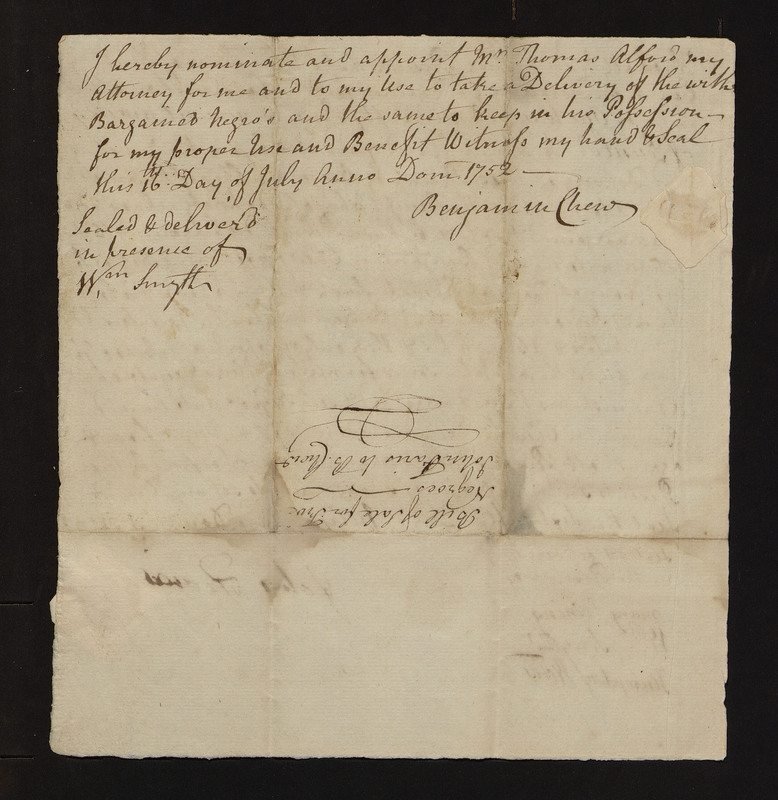 I hereby nominate and appoint Mr. Thomas Alford my
Attorney for me and to my Use to take a Delivery of the with
Bargained Negro's and the same to keep in his Possession
for my proper Use and Benefit Witness my hand & Seal
this 16th Day of July Anno Dom 1752
Benjamin Chew
Sealed & deliver'd
in presence of
Wm Smyth
Bill of Sale for
Negroes
John to B. Chew